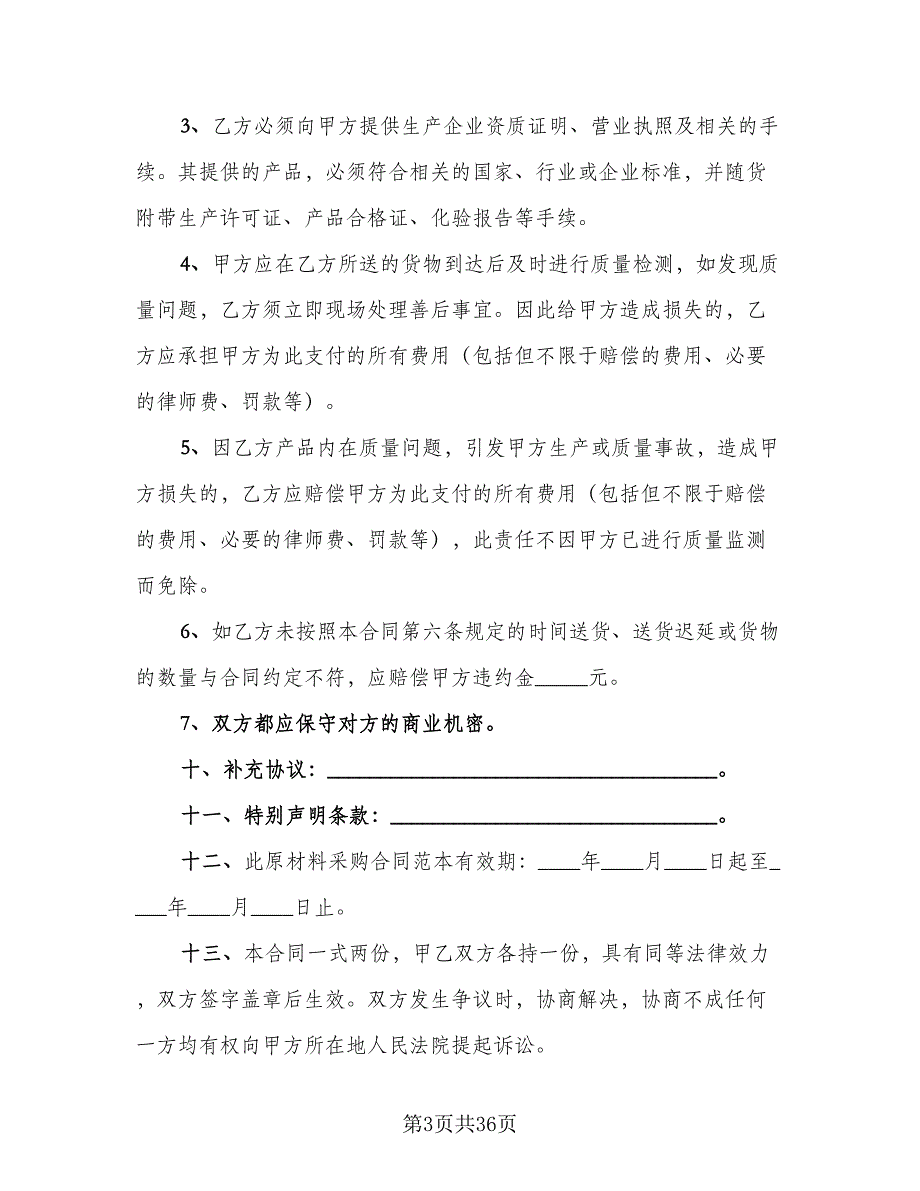 3、乙方必须向甲方提供生产企业资质证明、营业执照及相关的手
续。其提供的产品，必须符合相关的国家、行业或企业标准，并随货
附带生产许可证、产品合格证、化验报告等手续。
4、甲方应在乙方所送的货物到达后及时进行质量检测，如发现质
量问题，乙方须立即现场处理善后事宜。因此给甲方造成损失的，乙
方应承担甲方为此支付的所有费用（包括但不限于赔偿的费用、必要
的律师费、罚款等）。
5、因乙方产品内在质量问题，引发甲方生产或质量事故，造成甲
方损失的，乙方应赔偿甲方为此支付的所有费用（包括但不限于赔偿
的费用、必要的律师费、罚款等），此责任不因甲方已进行质量监测
而免除。
6、如乙方未按照本合同第六条规定的时间送货、送货迟延或货物
的数量与合同约定不符，应赔偿甲方违约金_____元。
7、双方都应保守对方的商业机密。
十、补充协议：_____________________________________。
十一、特别声明条款：_______________________________。
十二、此原材料采购合同范本有效期：____年____月____日起至_
___年____月____日止。
十三、本合同一式两份，甲乙双方各持一份，具有同等法律效力
，双方签字盖章后生效。双方发生争议时，协商解决，协商不成任何
一方均有权向甲方所在地人民法院提起诉讼。
第3页共36页